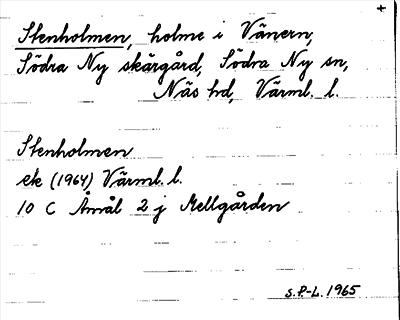 +
Stenholmen, holme i Vänern,
Södra Ny skärgård, Södra Ny sn,
Näs hd, Värml. l.
Stenholmen
ek (1964) Värml. l.
10 C Åmål 2 j Mellgården
S.P-L. 1965